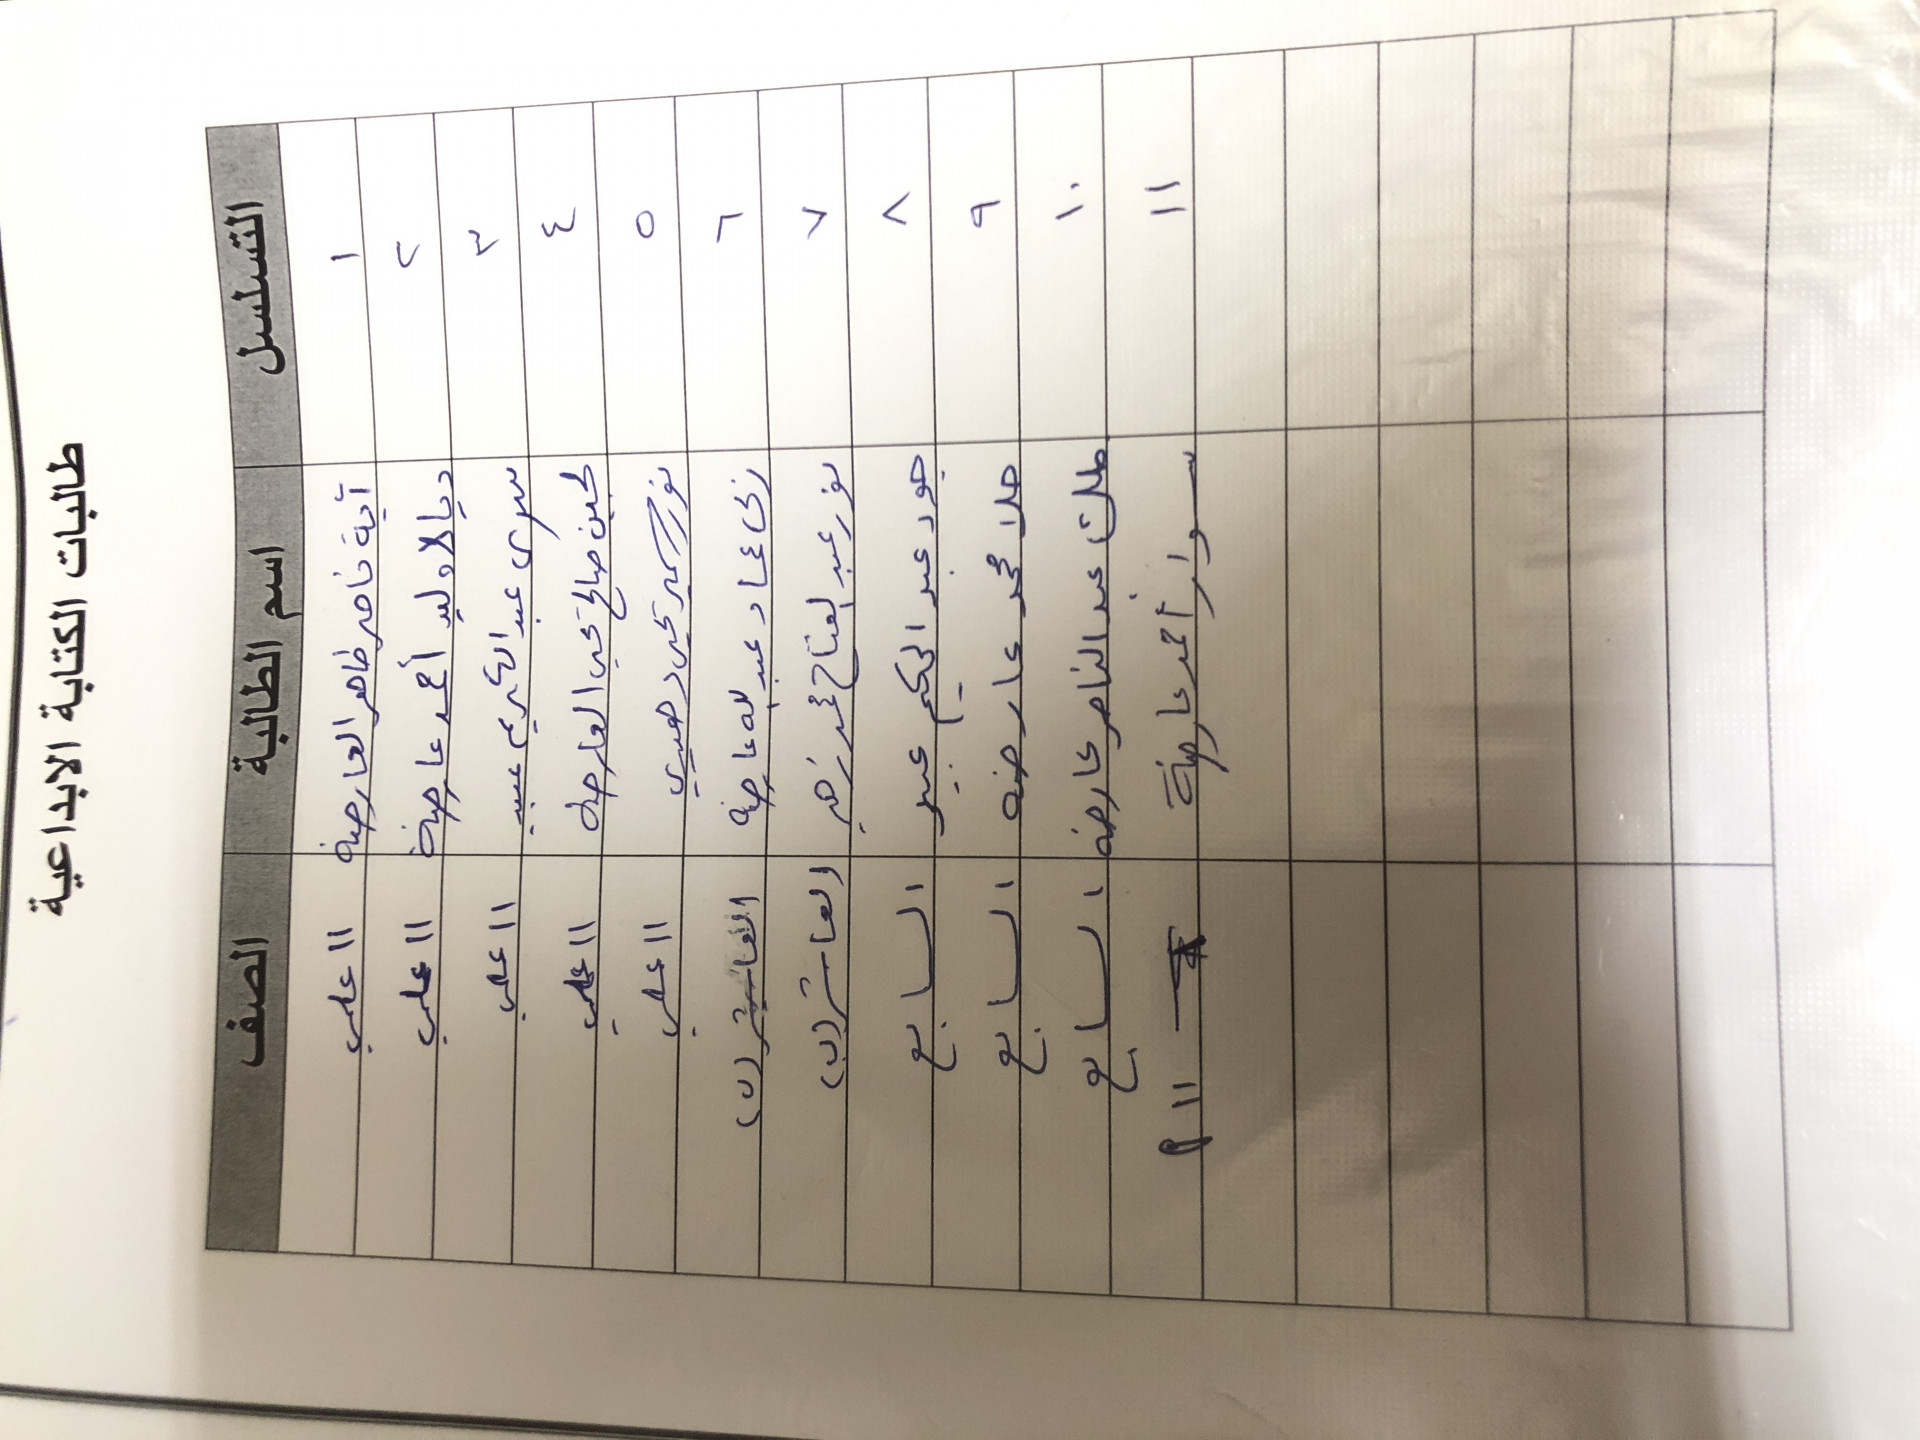 طالبات الكتابة الابداعية
التسلسل اسم الطالبة الصف
١ آية ناصر ظاهر العارضة ١١ علمي
٢ ديالا وليد أحمد عارضة ١١ علمي
٣ يسرى عبد الكريم عبيد ١١ علمي
٤ لجين صالح يحيى العارضة ١١ علمي
٥ نور يحيى ١١ علمي
٦ عماد عبد الله عارضة العاشر (ب)
٧ نور عبد الفتاح محمد زهير العاشر (ب)
٨ جود عبد الحكيم عبيد السابع
٩ حلا محمد عارضة السابع
١٠ عبد الناصر عارضة السابع
١١ سوار أحمد عارضة ١١